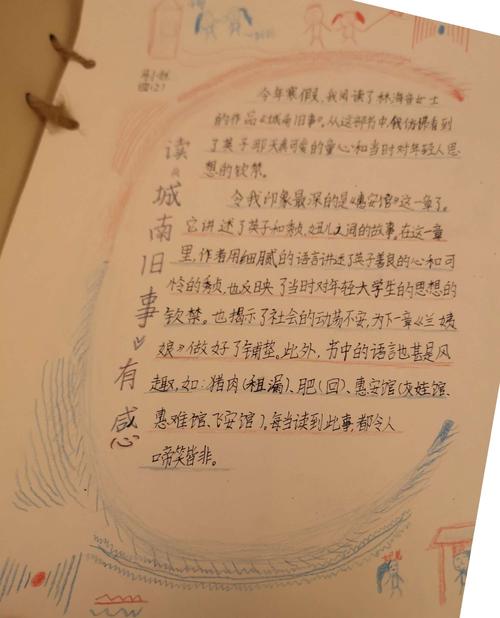 读《城南旧事》有感
今年寒假,我阅读了林海音女士
的作品《城南旧事》。从这部书中,我仿佛看到
了英子那天真可爱的童心和当时对年轻人思
想的钦禁。
令我印象最深的是《惠安馆》这一章了。
它讲述了英子和秀贞,妞儿之间的故事,在这一章
里,作者用细腻的语言讲述了英子善良的心和可
怜的秀贞,也反映了当时对年轻大学生的思想的
钦禁。也揭示了社会的动荡不安,为下一章《兰姨
娘》做好了铺垫。此外,书中的语言也甚是风
趣,如:猪肉(租漏)、肥(回)、惠安馆(灰娃馆、
惠难馆、飞安馆)。每当读到此事,都令人
啼笑皆非。